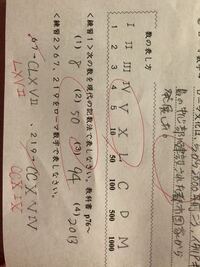 数の表し方
I II III IV V X L C D M
1 2 3 4 5 10 50 100 500 1000
<練習1>次の数を現代の記数法で表しなさい。教科書 p76~
(1) 8 (2) 50 (3) 94 (4) 2013
<練習2>67、219をローマ数字で表しなさい。
67→CLXVII、219→CCXVIV
LXVII CCXIX